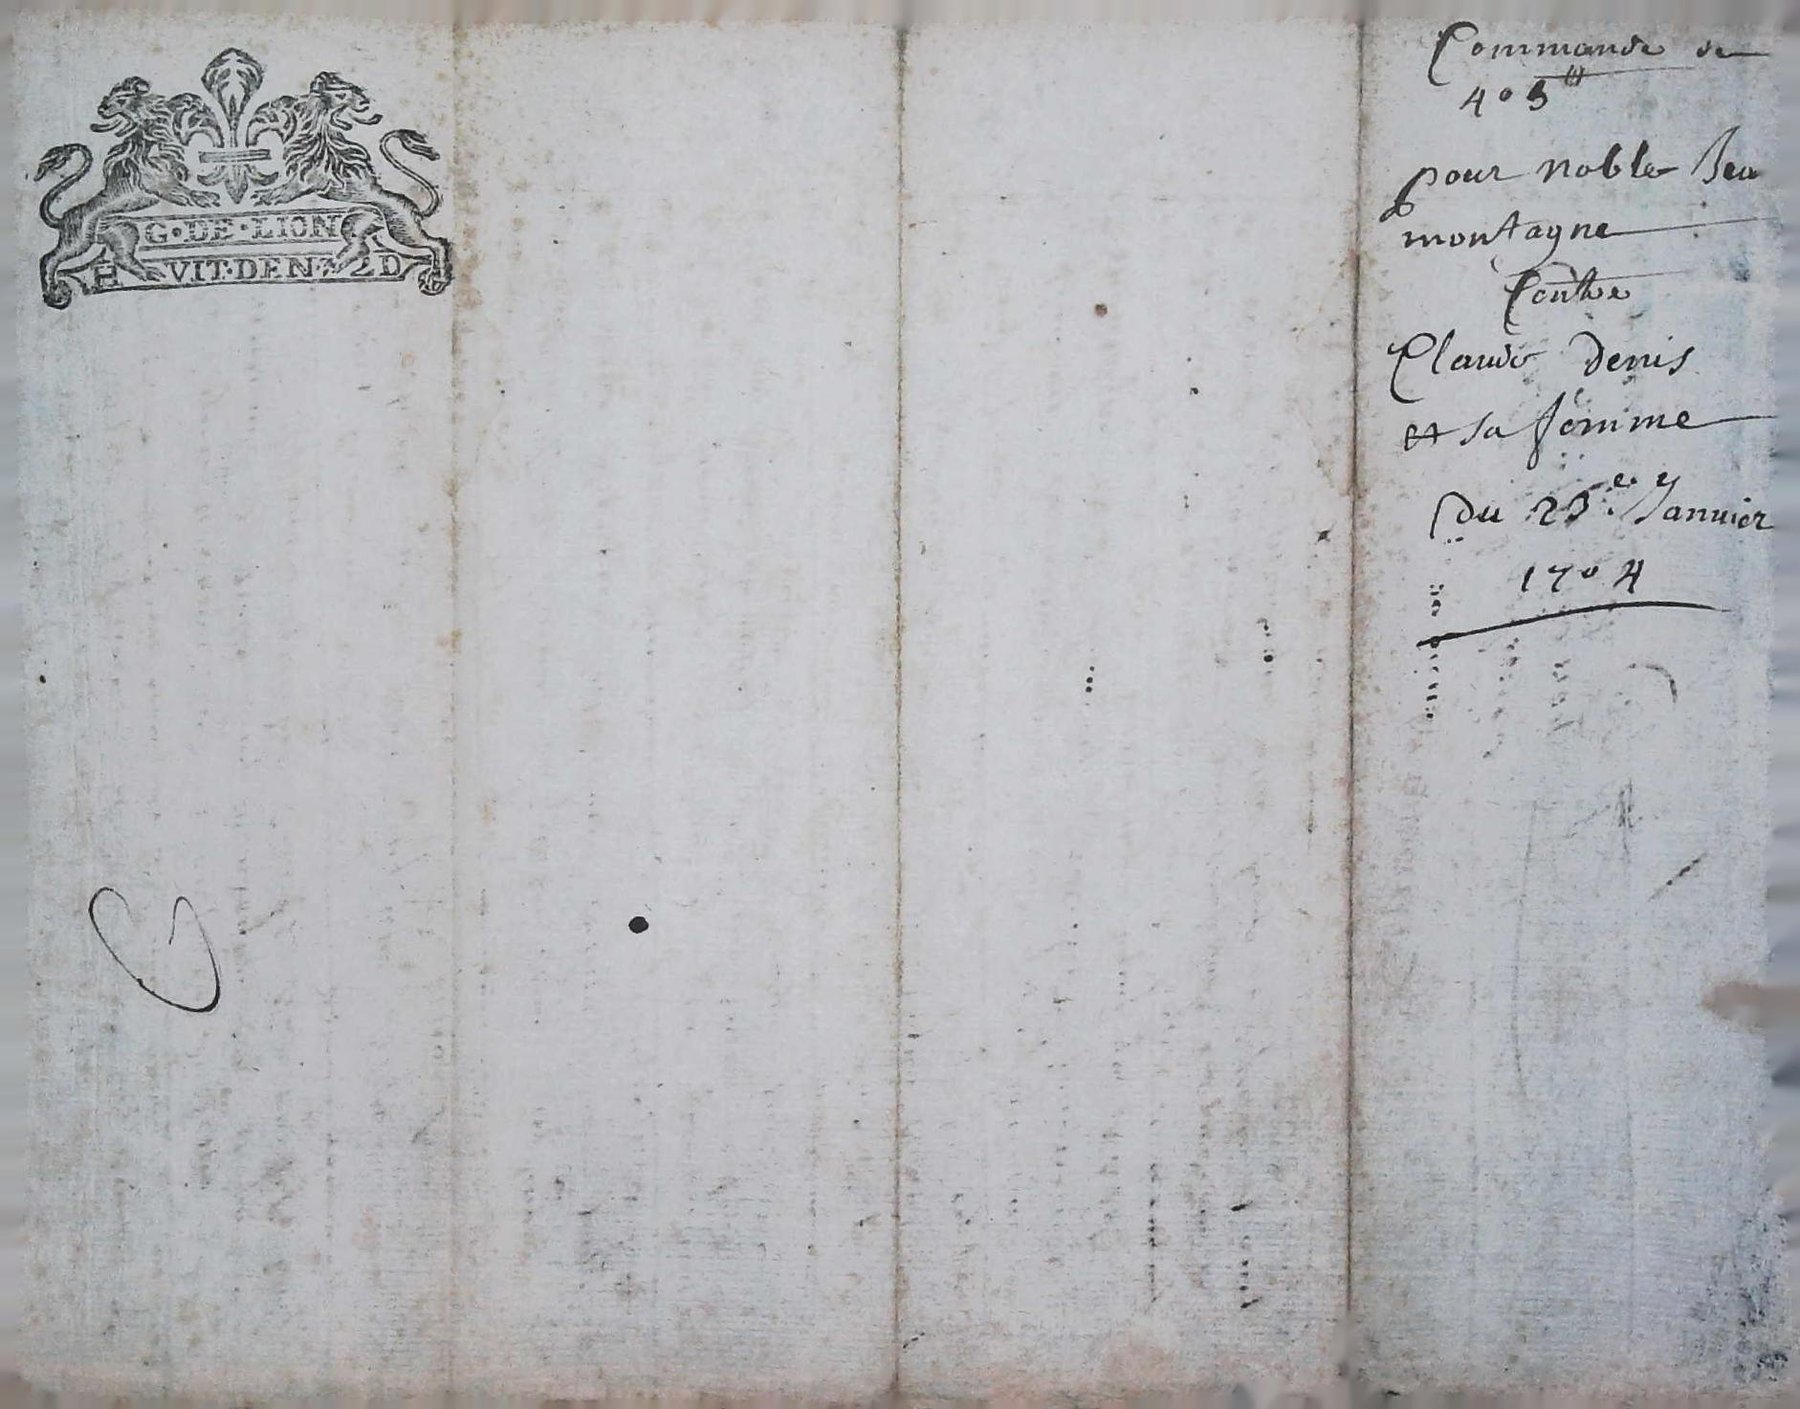 G·DE·LION
HVIT·DEN·2D
Commande de
405tt
pour noble Jea
montagne
Contre
Claude Denis
et sa femme
Du 23e Janvier
1704